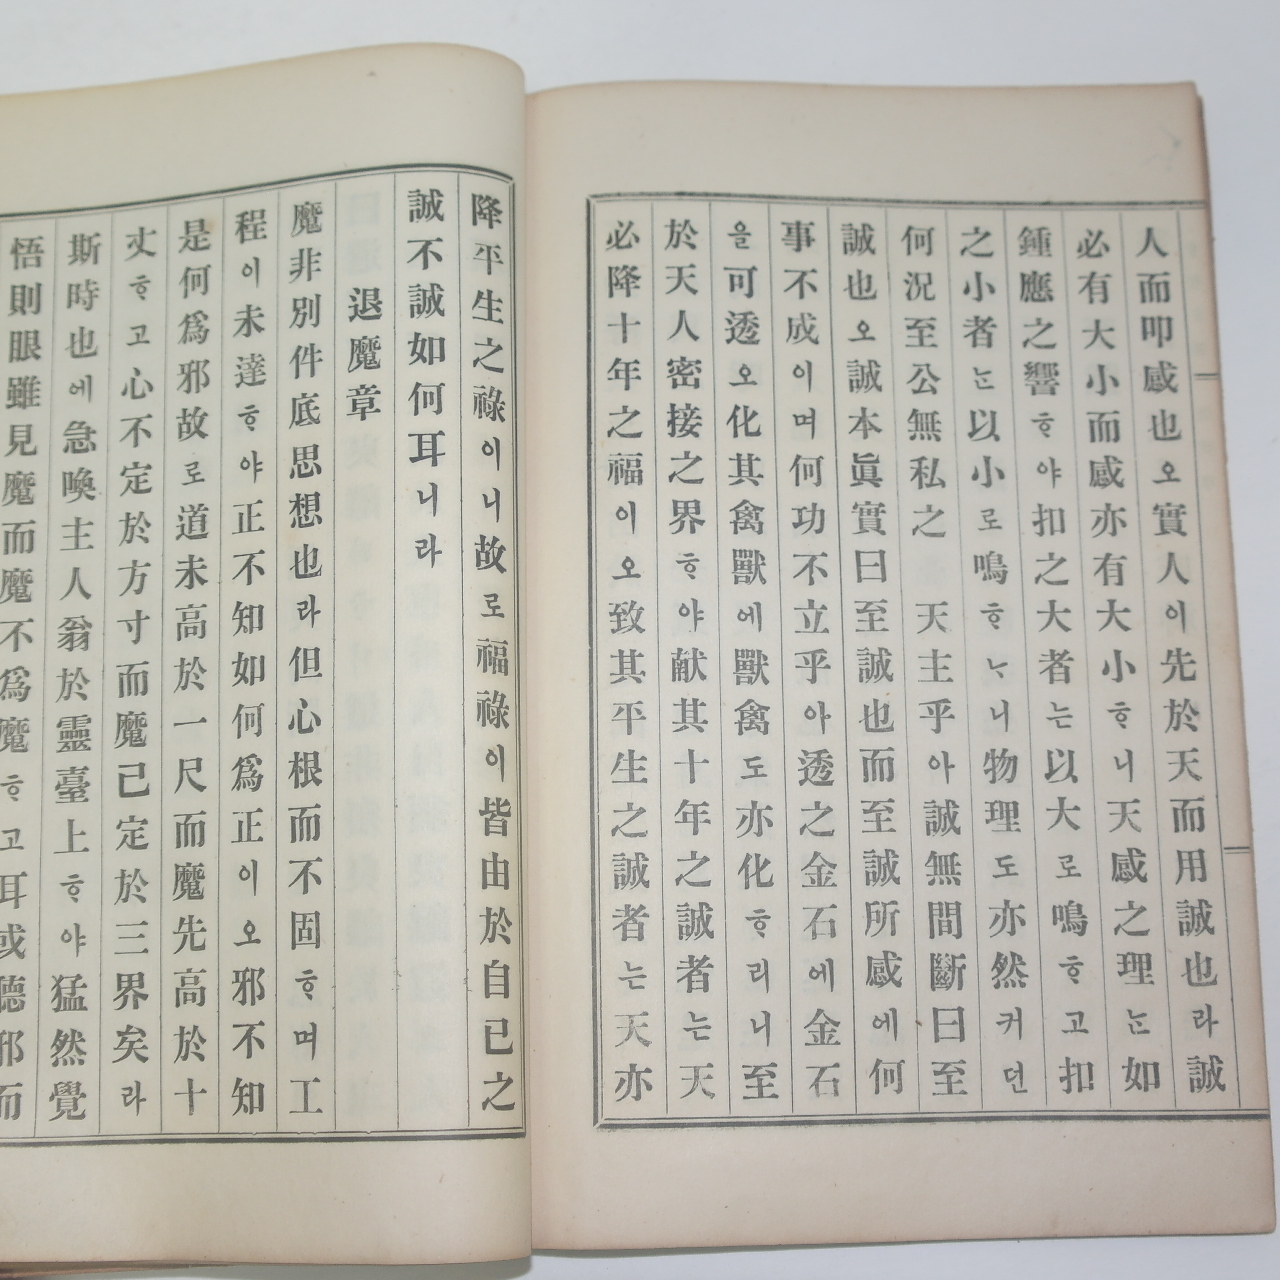 人而叩感也오實人이先於天而用誠也라誠
必有大小而感亦有大小ᄒᆞ니天感之理ᄂᆞᆫ如
鍾應之響ᄒᆞ야扣之大者는以大로鳴ᄒᆞ고扣
之小者ᄂᆞᆫ以小로鳴ᄒᆞᄂᆞ니物理도亦然커던
何況至公無私之 天主乎아誠無間斷曰至
誠也오誠本眞實曰至誠也而至誠所感에何
事不成이며何功不立乎아透之金石에金石
을可透오化其禽獸에獸禽도亦化ᄒᆞ리니至
於天人密接之界ᄒᆞ야献其十年之誠者는天
必降十年之福이오致其平生之誠者는天亦
降平生之祿이니故로福祿이皆由於自己之
誠不誠如何耳니라
退魔章
魔非別件底思想也라但心根而不固ᄒᆞ며工
程이未達ᄒᆞ야正不知如何爲正이오邪不知
是何爲邪故로道未高於一尺而魔先高於十
丈ᄒᆞ고心不定於方寸而魔已定於三界矣라
斯時也에急喚主人翁於靈臺上ᄒᆞ야猛然覺
悟則眼雖見魔而魔不爲魔ᄒᆞ고耳或德邪而